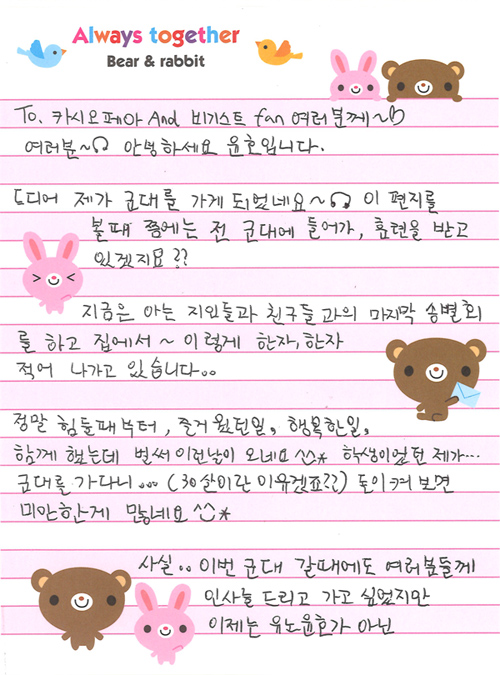 Always together
Bear & rabbit
To. 카시오페아 And 비기스트 fan 여러분께~
여러분~ 안녕하세요 윤호입니다.
드디어 제가 군대를 가게 되었네요~ 이 편지를
볼때 쯤에는 전 군대에 들어가, 훈련을 받고
있겠지요??
지금은 아는 지인들과 친구들 과의 마지막 송별회
를 하고 집에서~ 이렇게 한자, 한자
적어 나가고 있습니다..
정말 힘들때부터, 즐거웠던일, 행복한일,
함께 했는데 벌써 이런날이 오네요 ^^* 학생이었던 제가...
군대를 가다니... (30살이란 이유겠죠??) 돌이켜 보면
미안한게 많네요 ^^*
사실.. 이번 군대 갈때에도 여러분들께
인사는 드리고 가고 싶었지만
이제는 유노윤호가 아닌